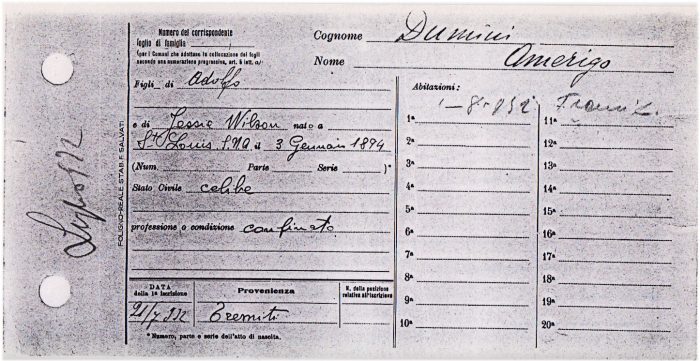 Numero del corrispondente
foglio di famiglia
(per i Comuni che adottano la collocazione dei fogli
secondo una numerazione progressiva, art. 5 lett. a)
Cognome Dumini
Nome Amerigo
Figli di Adolfo
e di Jessie Wilson nato a
St Louis S.N.A. il 3 Gennaio 1894
(Num. Parte Serie )*
Stato Civile celibe
professione o condizione confinato
DATA
della 1ª iscrizione
Provenienza
N. della posizione
relativa all'iscrizione
21/7 932 Tremiti
* Numero, parte e serie dell'atto di nascita.
Abitazioni:
1-8-932
1ª
2ª
3ª
4ª
5ª
6ª
7ª
8ª
9ª
10ª
11ª
12ª
13ª
14ª
15ª
16ª
17ª
18ª
19ª
20ª
FOLIGNO-REALE STAB. F. SALVATI